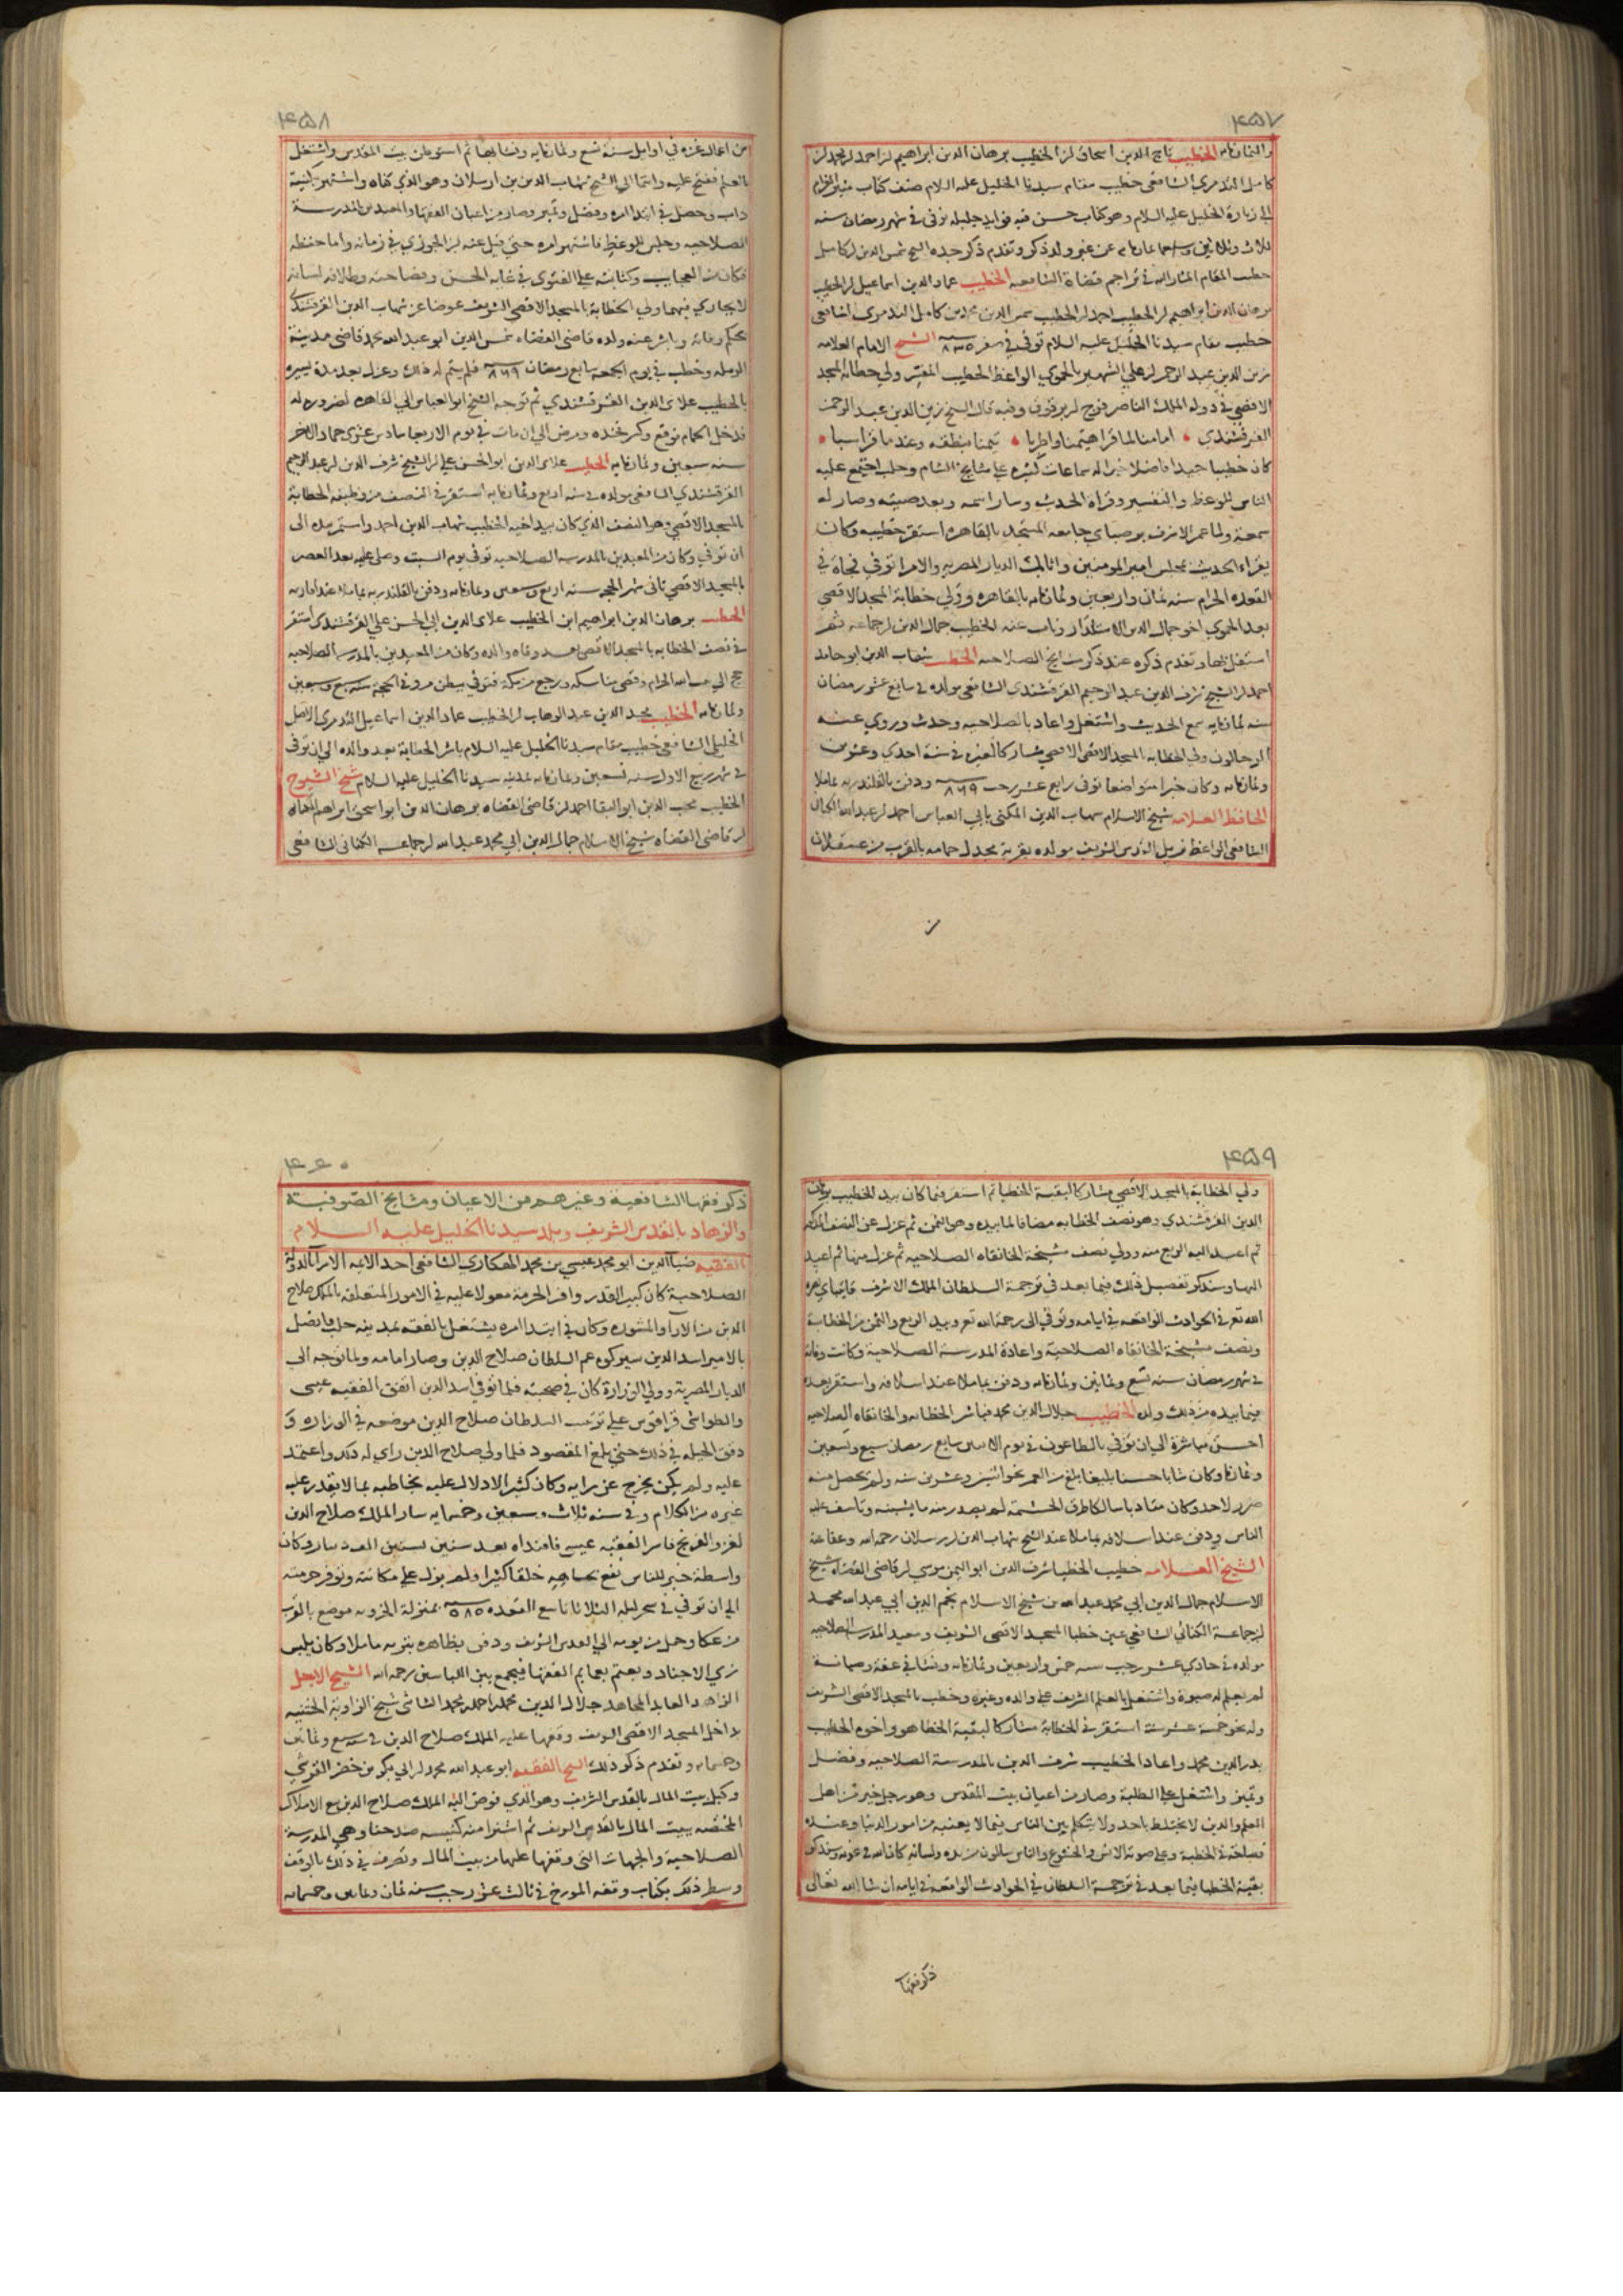 ٤٥٧
وثمانمائة الخطيب تاج الدين اسحاق بن الخطيب برهان الدين ابراهيم بن احمد بن محمد بن
كامل التدمري الشافعي خطيب مقام سيدنا الخليل عليه السلام صنف كتاب مثير الغرام
الي زيارة الخليل عليه السلام وهو كتاب حسن فيه فوايد جليله توفى في شهر رمضان سنه
ثلاث وثلاثين وثمانمائة عن غير ولد ذكر وتقدم ذكر جده الشيخ شمس الدين بن كامل
خطيب المقام المشار اليه في تراجم قضاة الشافعيه الخطيب عماد الدين اسماعيل بن الخطيب
برهان الدين ابراهيم بن الخطيب احمد بن الخطيب شمس الدين محمد بن كامل التدمري الشافعي
خطيب مقام سيدنا الخليل عليه السلام توفى في صفر سنة ٨٣٥ الشيخ الامام العلامه
زين الدين عبد الرحمن بن علي الشهير بالحموي الواعظ الخطيب المفسر ولي خطابة المسجد
الاقصي في دولة الملك الناصر فرج بن برقوق وفيه قال الشيخ زين الدين عبد الرحمن
القرقشندي
كان خطيبا جيدا فاضلا خيرا له سماعات كثيره على مشايخ الشام وحلب اجتمع عليه
الناس للوعظ والتفسير وقراة الحديث وسار اسمه وبعد صيته وصار له
سمعة ولما عمر الاشرف برصباي جامعه المستجد بالقاهره استقر خطيبه وكان
يقراء الحديث بمجلس امير المومنين واتابك الديار المصريه والامرا توفي فجاة في
القعده الحرام سنه ثمان واربعين وثمانمائه بالقاهره وولي خطابة المسجد الاقصي
بعد الحموي اخو جمال الدين الاستادار وناب عنه الخطيب جمال الدين بن جماعه ثم
استقل بها وتقدم ذكره عند ذكر مشايخ الصلاحيه الخطيب شهاب الدين ابو حامد
احمد بن الشيخ شرف الدين عبد الرحيم القرقشندي الشافعي مولده في سابع عشر رمضان
سنه ثمانمايه سمع الحديث واشتغل واعاد بالصلاحيه وحدث وروي عنه
الرحالون ولي الخطابه بالمسجد الاقصي الاقصي مشاركا لغيره في سنة احدي وعشرين
وثمانمائه وكان خيرا متواضعا توفى رابع عشر رجب سنة ٨٦٩ ودفن بالقلندريه بماملا
الحافظ العلامه شيخ الاسلام شهاب الدين المكني بابي العباس احمد بن عبد الله الكناني
الشافعي الواعظ نزيل القدس الشريف مولده بقرية مجدل حمامه بالقرب من عسقلان
من
٤٥٨
من اعمال غزه في اوايل سنة تسع وثمانمايه ونشا بها ثم استوطن بيت المقدس واشتغل
بالعلم ففتح عليه وانتما الي الشيخ شهاب الدين بن ارسلان وهو الذي كناه واشتهر بكنيته
داب وحصل في ابتدا امره وفضل وتميز وصار من اعيان الفقها والمعيدين بالمدرسة
الصلاحيه وجلس للوعظ فاشتهر امره حتى قيل عنه ابن الجوزي في زمانه واما حفظه
فكان من العجايب وكتابته على الفتوي في غاية الحسن وفصاحته وطلاقة لسانه
لا يجاري فيهما ولي الخطابة بالمسجد الاقصي الشريف عوضا عن شهاب الدين القرقشندي
بحكم وفاته وباشر عنه ولده قاضي القضاه شمس الدين ابو عبد الله محمد قاضي مدينة
الرمله وخطب في يوم الجمعه سابع رمضان سنة ٨٦٩ فلم يتم له ذلك وعزل بعد مدة يسيره
بالخطيب علاي الدين القرقشندي ثم توجه الشيخ ابو العباس الي القاهره لضرورة له
فدخل الحمام فوقع وكسر فخذه ومرض الي ان مات في يوم الاربعا سادس عشري جماد الاخر
سنه سبعين وثمانمايه الخطيب علاي الدين ابو الحسن علي بن الشيخ شرف الدين بن عبد الرحيم
القرقشندي الشافعي مولده في سنه اربع وثمانمايه استقر في النصف من وظيفة الخطابة
بالمسجد الاقصي وهو النصف الذي كان بيد اخيه الخطيب شهاب الدين احمد واستمر بيده الى
ان توفي وكان من المعيدين بالمدرسه الصلاحيه توفي يوم السبت وصلي عليه بعد العصر
بالمسجد الاقصي ثاني شهر الحجه سنه اربع وسبعين وثمانمايه ودفن بالقلندريه بماملا عند اقاربه
الخطيب برهان الدين ابراهيم ابن الخطيب علاي الدين ابي الحسن علي القرقشندي استقر
في نصف الخطابه بالمسجد الاقصي بعد وفاة والده وكان من المعيدين بالمدرسه الصلاحيه
حج الي بيت الله الحرام وقضى مناسكه ورجع من مكة فتوفي ببطن مرو في الحجة سنه سبع وسبعين
وثمانمايه الخطيب مجد الدين عبد الوهاب بن الخطيب عماد الدين اسماعيل التدمري الاصل
الخليلي الشافعي خطيب مقام سيدنا الخليل عليه السلام باشر الخطابة بعد والده الي ان توفي
في شهر ربيع الاول سنه تسعين وثمانمايه بمدينه سيدنا الخليل عليه السلام شيخ الشيوخ
الخطيب محب الدين ابو البقا احمد بن قاضي القضاه برهان الدين ابو اسحق ابراهيم
بن قاضي القضاه شيخ الاسلام جمال الدين ابي محمد عبد الله بن جماعه الكناني الشافعي
٤٥٩
ولي الخطابة بالمسجد الاقصي مشاركا لبقية الخطبا ثم استقر فيما كان بيد الخطيب برهان
الدين القرقشندي وهو نصف الخطابه مضافا لما بيده وهو الثمن ثم عزل عن النصف المذكور
ثم اعيد اليه الربع منه وولي نصف مشيخة الخانقاه الصلاحيه ثم عزل منها ثم اعيد
اليها وسنذكر تفصيل ذلك فيما بعد في ترجمة السلطان الملك الاشرف قايتباي نصره
الله تعالى في الحوادث الواقعه في ايامه وتوفي الى رحمة الله تعالى وبيده الربع والثمن من الخطابة
ونصف مشيخة الخانقاه الصلاحية واعادة المدرسة الصلاحية وكانت وفاته
في شهر رمضان سنه تسع وثمانين وثمانمايه ودفن بماملا عند اسلافه واستقر بعده
فيما بيده من ذلك ولده الخطيب جلال الدين محمد فباشر الخطابه والخانقاه الصلاحيه
احسن مباشرة الي ان توفي بالطاعون في يوم الاثنين سابع رمضان سبع وتسعين
وثمانمايه وكان شابا حسنا بليغا بلغ من العمر نحو اثنين وعشرين سنه ولم يحصل منه
ضرر لاحد وكان متادبا سالكا طرق الحشمة لم يصدر منه ما يشينه وتاسف عليه
الناس ودفن عند اسلافه بماملا عند الشيخ شهاب الدين بن رسلان رحمه الله وعفا عنه
الشيخ العلامه خطيب الخطبا شرف الدين ابو اليمن موسي بن قاضي القضاه شيخ
الاسلام جمال الدين ابي محمد عبد الله بن شيخ الاسلام نجم الدين ابي عبد الله محمد
بن جماعة الكناني الشافعي عين خطبا المسجد الاقصي الشريف ومعيد المدرسه الصلاحيه
مولده في حادي عشر رجب سنه خمس واربعين وثمانمايه ونشا في عفة وصيانة
لم يعلم له صبوة واشتغل بالعلم الشريف علي والده وغيره وخطب بالمسجد الاقصي الشريف
وله نحو خمسة عشر سنة استقر في الخطابة مشاركا لبقية الخطبا هو واخوه الخطيب
بدر الدين محمد واعاد الخطيب شرف الدين بالمدرسة الصلاحيه وفضل
وتميز واشتغل عليه الطلبة وصار من اعيان بيت المقدس وهو رجل خير من اهل
العلم والدين لا يختلط باحد ولا يتكلم بين الناس فيما لا يعنيه من امور الدنيا وعنده
فصاحة في الخطبة وعلي صوته الانس والخشوع والناس سالمون من يده ولسانه كان الله في عونه وسنذكر
بقية الخطبا فيما بعد في ترجمة السلطان في الحوادث الواقعه في ايامه ان شا الله تعالى
ذكر فقها
٤٦٠
ذكر فقها الشافعية وغيرهم من الاعيان ومشايخ الصوفية
والزهاد بالقدس الشريف وبلد سيدنا الخليل عليه السلام
الفقيه ضيا الدين ابو محمد عيسي بن محمد الهكاري الشافعي احد الامرا بالدولة
الصلاحية كان كبير القدر وافر الحرمة معولا عليه في الامور المتعلقه بالملك صلاح
الدين من الآرا والمشوره وكان في ابتدا امره يشتغل بالفقه بمدينه حلب فاتصل
بالامير اسد الدين شيركوه عم السلطان صلاح الدين وصار امامه ولما توجه الى
الديار المصرية وولي الوزارة كان في صحبته فلما توفي اسد الدين اتفق الفقيه عيسى
والطواشي قراقوش علي ترتيب السلطان صلاح الدين موضعه في الوزاره و
دقق الحيله في ذلك حتي بلغ المقصود فلما ولي صلاح الدين راي له ذلك واعتمد
عليه ولم يكن يخرج عن رايه وكان كثير الادلال عليه يخاطبه بما لا يقدر عليه
غيره من الكلام وفي سنه ثلاث وسبعين وخمسمايه سار الملك صلاح الدين
لغزو الفرنج فاسر الفقيه عيسى فافتداه بعد سنين بستين الف دينار وكان
واسطة خير للناس نفع بجاهه خلقا كثيرا ولم يزل علي مكانته وتوفر حرمته
الي ان توفي في سحر ليله الثلاثا تاسع القعده سنة ٥٨٥ بمنزلة الخروبه موضع بالقرب
من عكا وحمل من يومه الي القدس الشريف ودفن بظاهره بتربه ماملا وكان يلبس
زي الاجناد ويعتم بعمايم الفقها فيجمع بين اللباسين رحمه الله الشيخ الاجل
الزاهد العابد المجاهد جلال الدين محمد بن احمد بن محمد الشاشي شيخ الزاوية الختنيه
بداخل المسجد الاقصي الشريف وقفها عليه الملك صلاح الدين في سنه سبع وثمانين
وخمسمايه وتقدم ذكر ذلك الشيخ الفقيه ابو عبد الله محمد بن ابي بكر بن خضر القرشي
وكيل بيت المال بالقدس الشريف وهو الذي فوض اليه الملك صلاح الدين بيع الاملاك
المختصه ببيت المال بالقدس الشريف ثم اشترا منه كنيسه صند حنا وهي المدرسة
الصلاحية والجهات التي وقفها عليها من بيت المال وتصرف في ذلك بالوقف
وسطر ذلك بكتاب وقفه المورخ في ثالث عشر رجب سنه ثمان وثمانين وخمسمايه